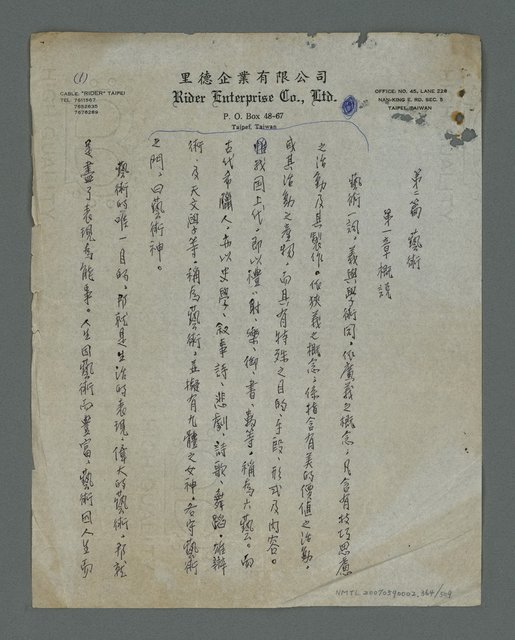 (1)
里德企業有限公司
Rider Enterprise Co., Ltd.
P. O. Box 48-67
Taipei, Taiwan
CABLE "RIDER" TAIPEI
TEL 7611567
7652635
7678289
OFFICE: NO. 45, LANE 228
NAN-KING E. RD. SEC. 5
TAIPEI, TAIWAN
第二篇 藝術
第一章 概說
藝術一詞，義與學術同。依廣義之概念，凡含有技巧思慮
之活動及其製作。依狹義之概念，係指含有美的價值之活動，
或其活動之產物，而具有特殊之目的、手段、形式及內容。
我國上代，即以禮、射、樂、御、書、數等，稱為六藝。而
古代希臘人，亦以史學、敘事詩、悲劇、詩歌、舞蹈、雄辯
術、及天文學等，稱為藝術。並擬有九體之女神，各守藝術
之門，曰藝術神。
藝術的唯一目的，那就是生活的表現，偉大的藝術，那就
是盡了表現為能事。人生因藝術而豐富，藝術因人生而
NMTL 20070590002.364/509